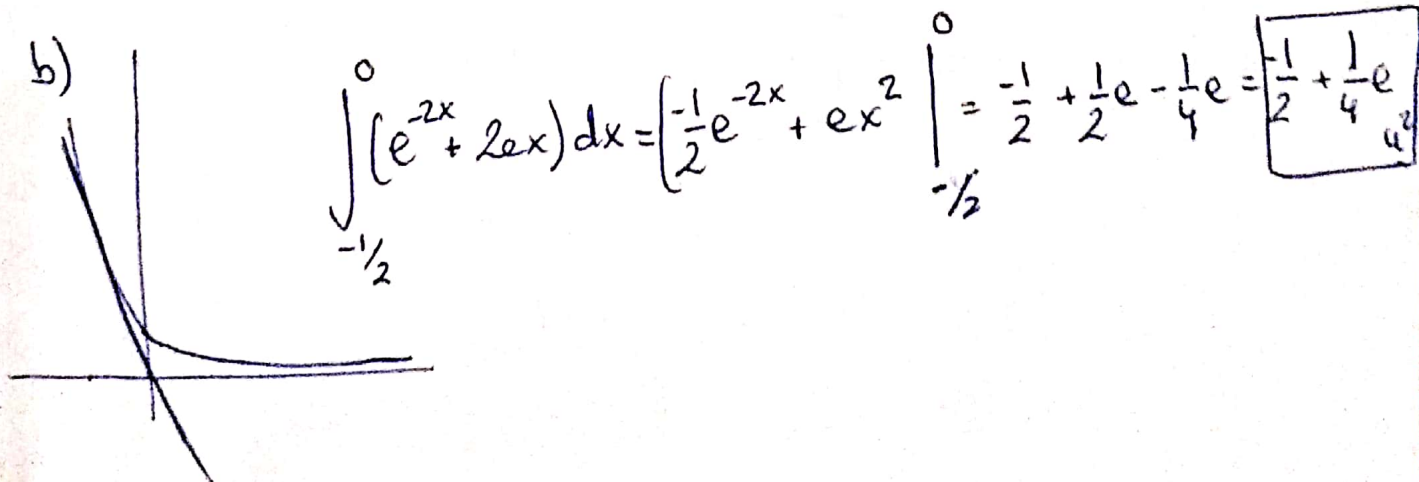 b) ∫_{-1/2}^{0} (e^{-2x} + 2ex) dx = [-1/2 e^{-2x} + ex^2 |_{-1/2}^{0} = -1/2 + 1/2 e - 1/4 e = -1/2 + 1/4 e u^2